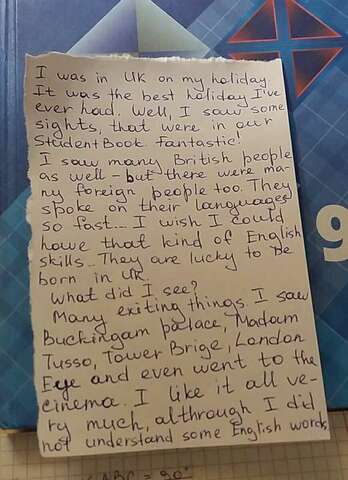 I was in UK on my holiday.
It was the best holiday I've
ever had. Well, I saw some
sights, that were in our
StudentBook. Fantastic!
I saw many British people
as well - but there were ma-
ny foreign people too. They
spoke on their languages
so fast... I wish I could
have that kind of English
skills.. They are lucky to be
born in UK.
What did I see?
Many exiting things. I saw
Buckingam palace, Madam
Tusso, Tower Brige, London
Eye and even went to the
cinema. I like it all ve-
ry much, although I did
not understand some English words
9
ABC = 90°